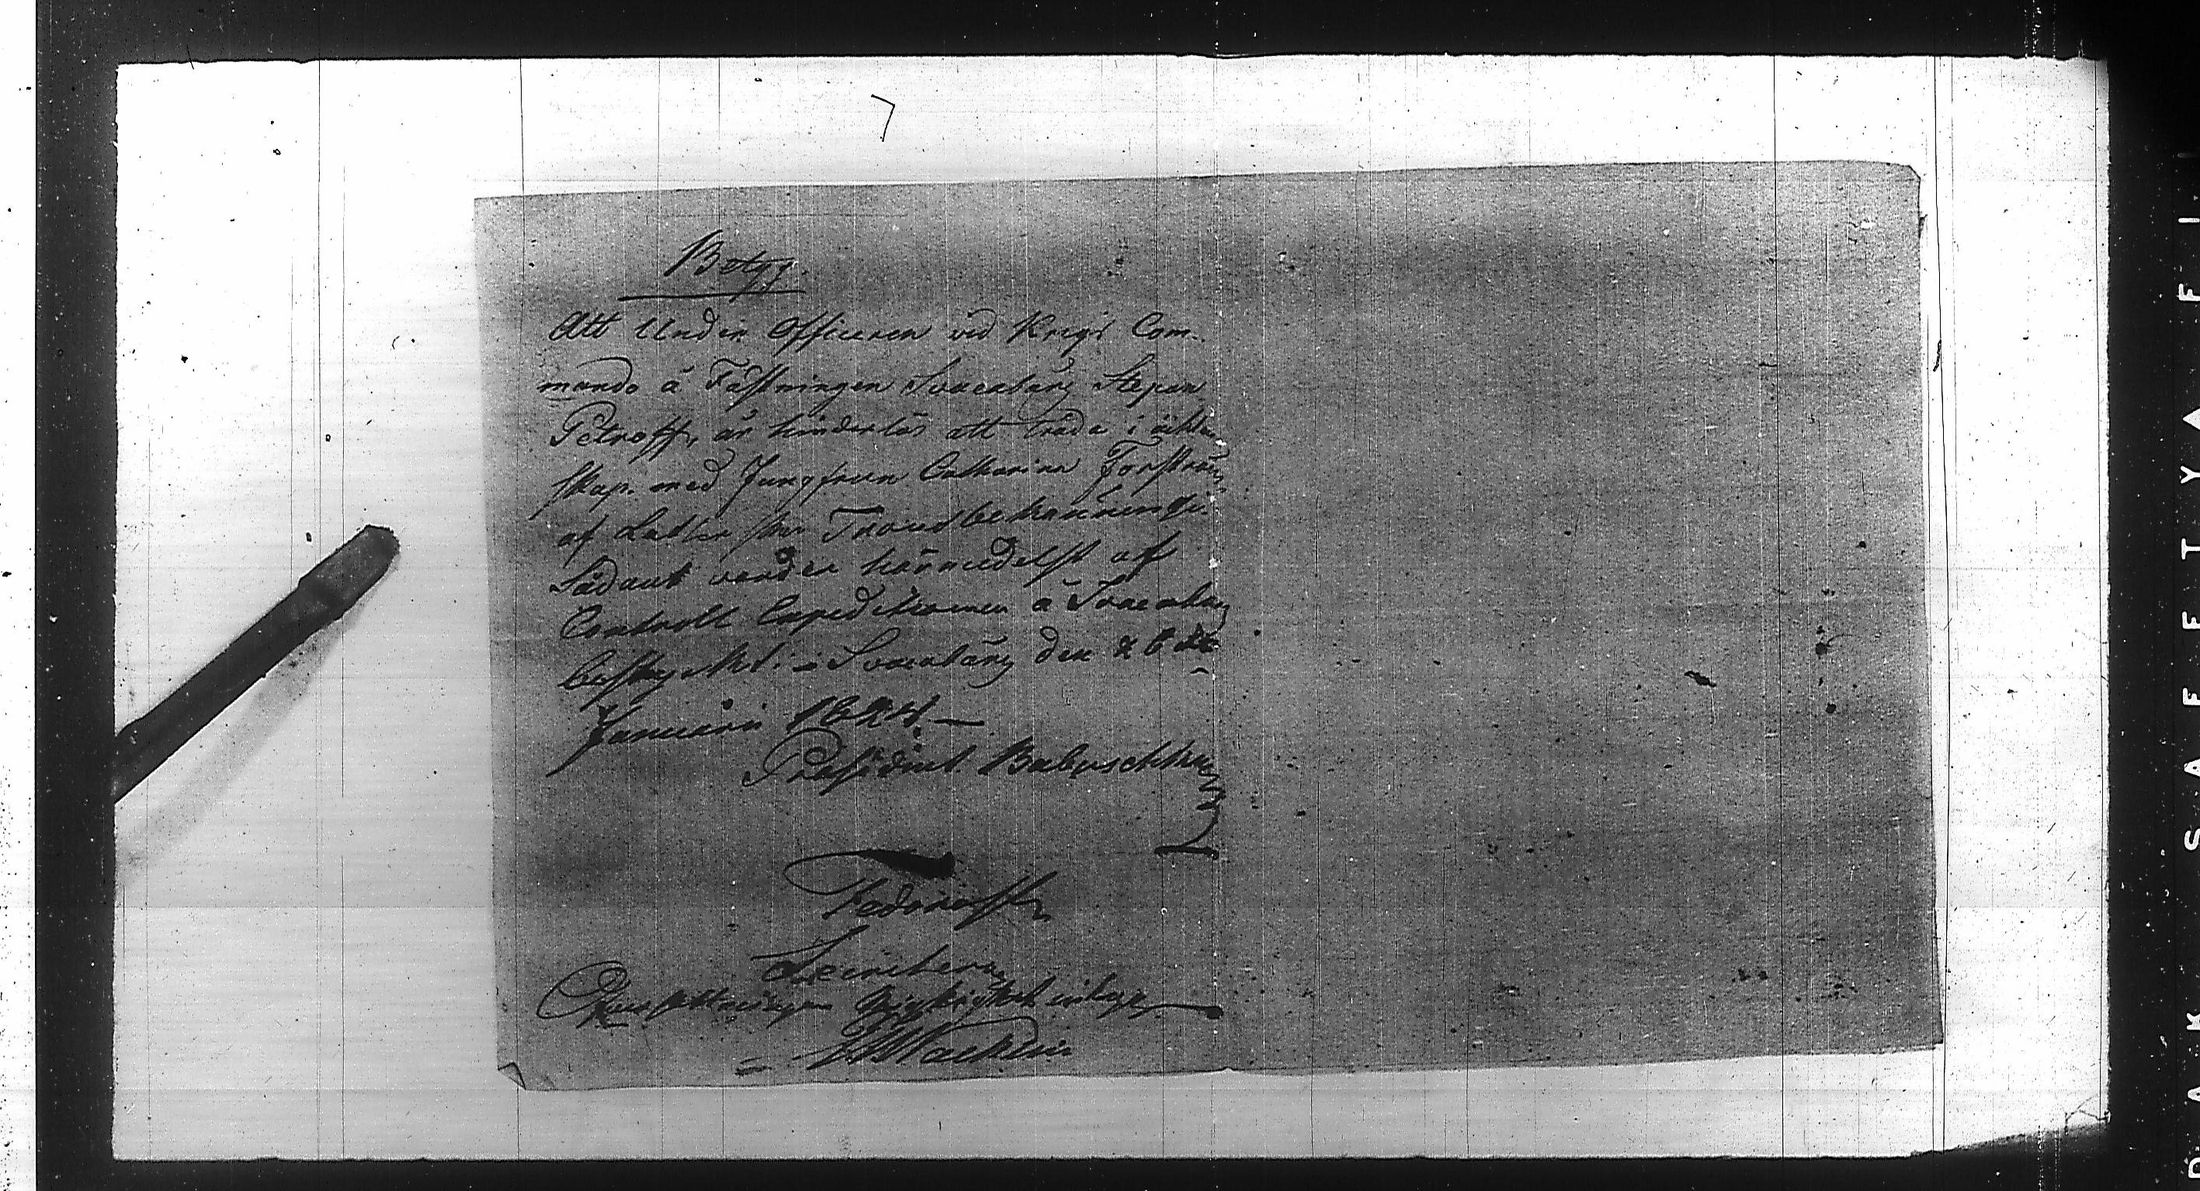 7
Betyg
Att Under Officeren vid Krigs Com
mando å Fästningen Sveaborg Stepan
Petroff, är hinderlös att träda i ächten
skap med Jungfrun Catharina Forström
af Lutherska Troesbekännelsen
Sådant varder härmedelst af
Controll Expeditionen å Sveaborg
bestyrkt. - Sveaborg den 26de
Januarii 1824. -
President Babuschkin
Fedoroff
Öfversättningens rigtighet intygar
SAFETY▲FI